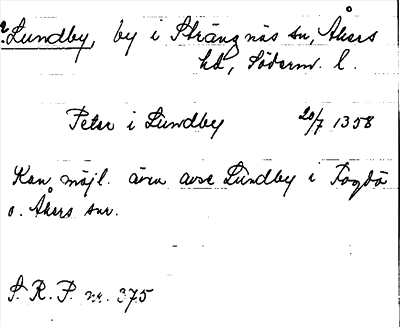 Lundby, by i Strängnäs sn, Åkers
hd, Söderm. l.
Peter i Lundby 20/7 1358
Kan möjl. även avse Lundby i Fogdö
o. Åkers snr.
S. R. P. nr. 375